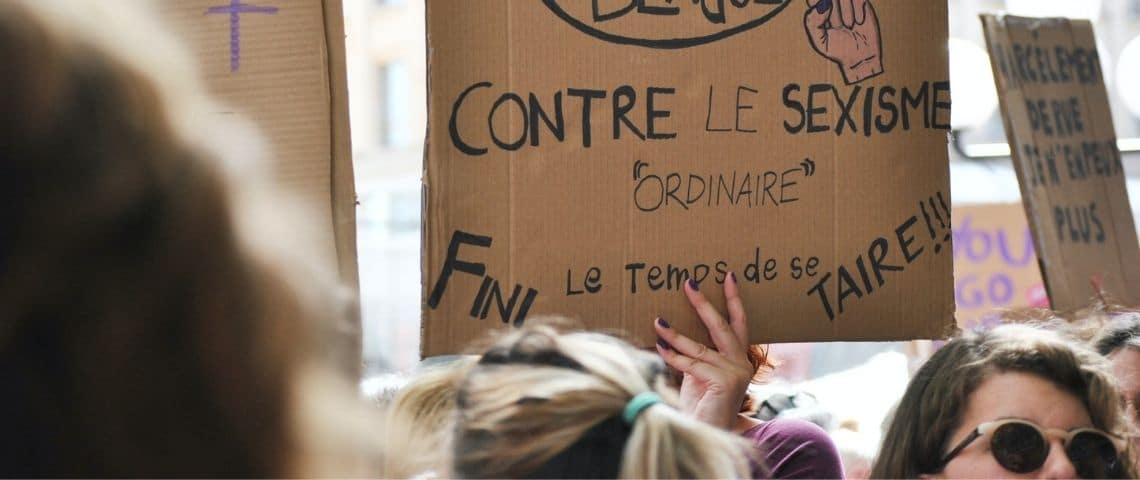 CONTRE LE SEXISME
"ORDINAIRE"
FINI Le Temps de se TAIRE!!!
ARCELEMENT
DE RUE
JE N'EN PEUX
PLUS
YOU
GO